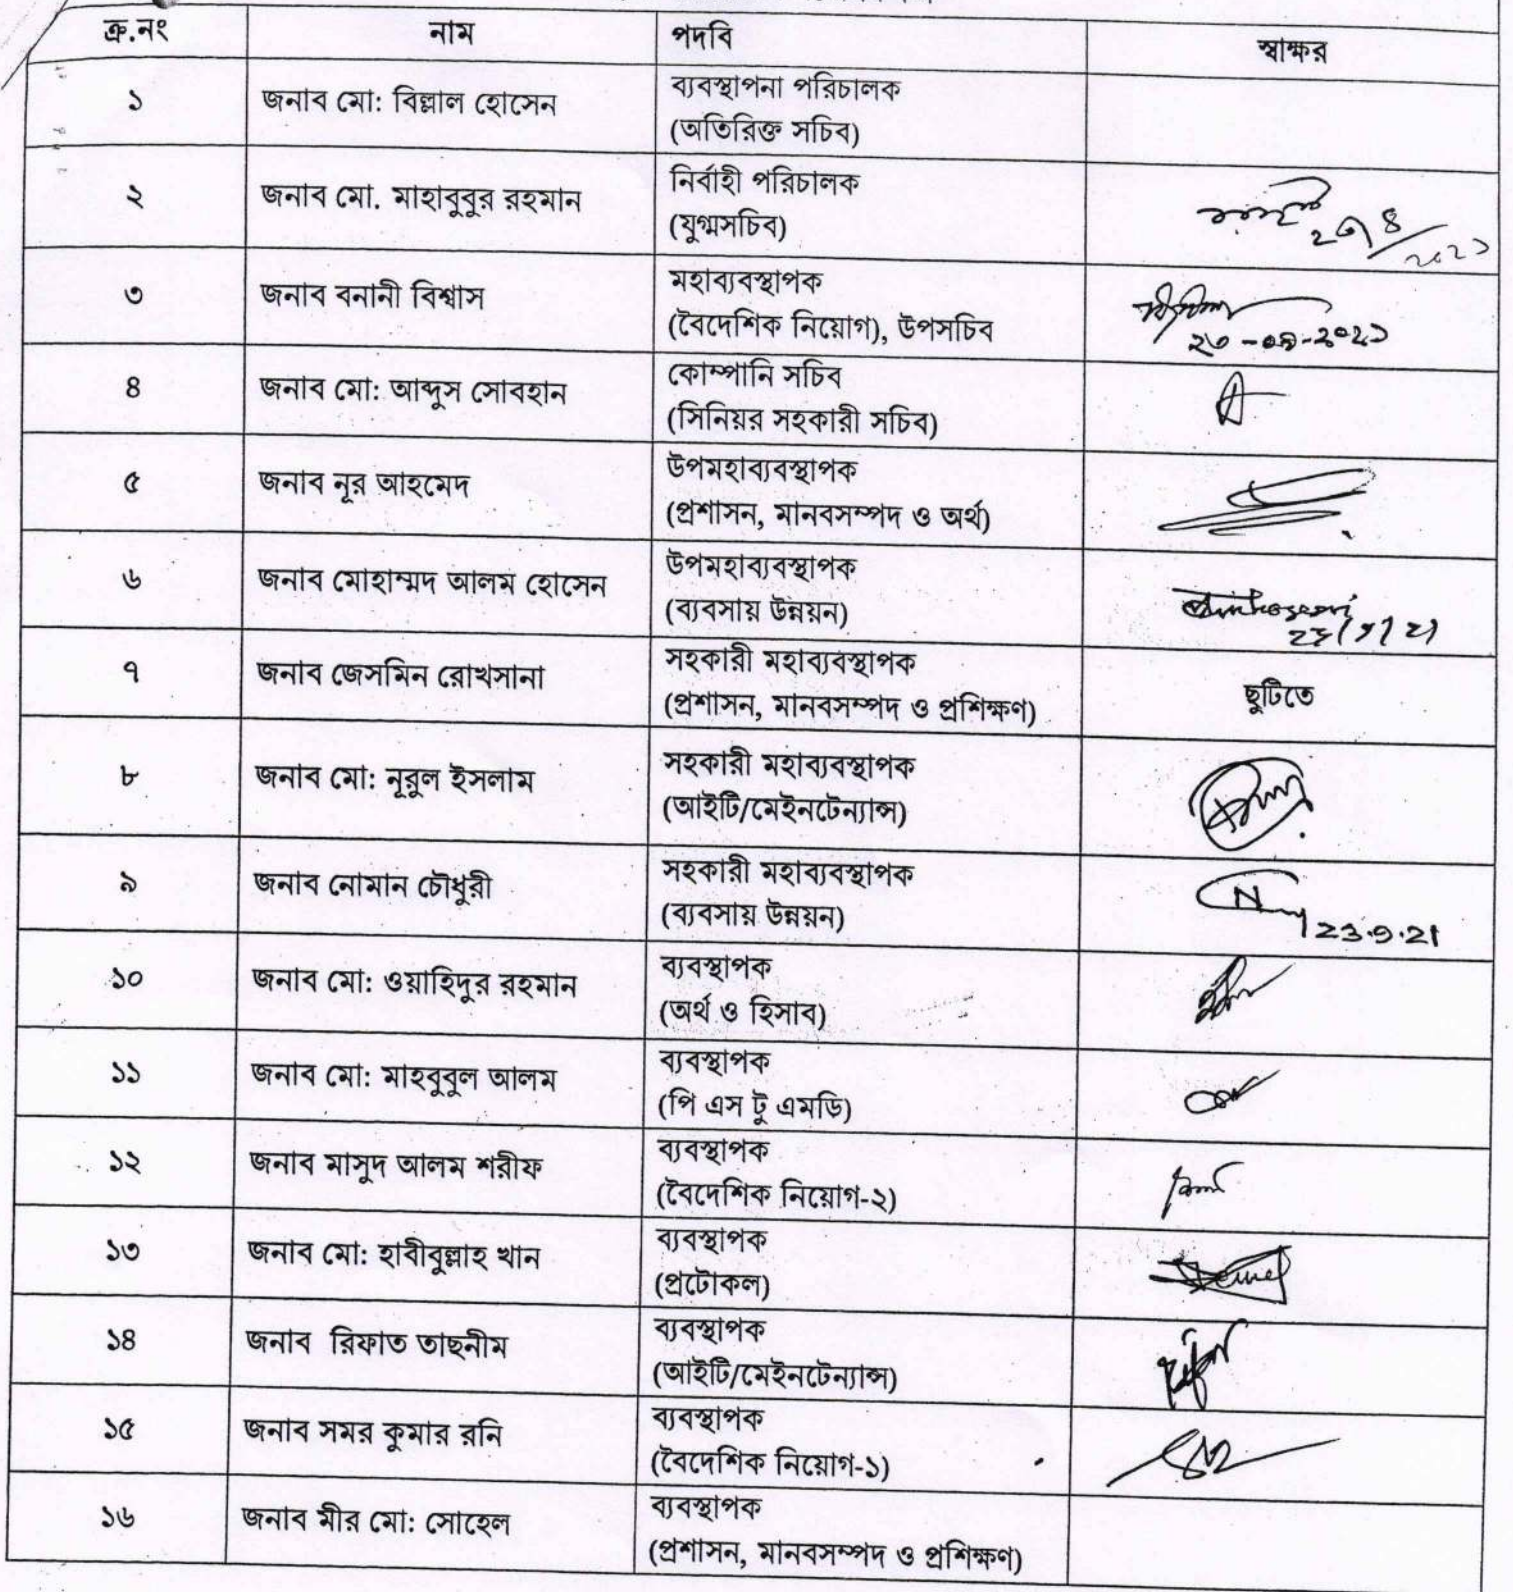 ক্র.নং নাম পদবি স্বাক্ষর
১ জনাব মো: বিল্লাল হোসেন ব্যবস্থাপনা পরিচালক
(অতিরিক্ত সচিব)
২ জনাব মো. মাহাবুবুর রহমান নির্বাহী পরিচালক
(যুগ্মসচিব)
৩ জনাব বনানী বিশ্বাস মহাব্যবস্থাপক
(বৈদেশিক নিয়োগ), উপসচিব
২৩-০৯-২০২১
৪ জনাব মো: আব্দুস সোবহান কোম্পানি সচিব
(সিনিয়র সহকারী সচিব)
৫ জনাব নূর আহমেদ উপমহাব্যবস্থাপক
(প্রশাসন, মানবসম্পদ ও অর্থ)
৬ জনাব মোহাম্মদ আলম হোসেন উপমহাব্যবস্থাপক
(ব্যবসায় উন্নয়ন)
৭ জনাব জেসমিন রোখসানা সহকারী মহাব্যবস্থাপক
(প্রশাসন, মানবসম্পদ ও প্রশিক্ষণ) ছুটিতে
৮ জনাব মো: নূরুল ইসলাম সহকারী মহাব্যবস্থাপক
(আইটি/মেইনটেন্যান্স)
৯ জনাব নোমান চৌধুরী সহকারী মহাব্যবস্থাপক
(ব্যবসায় উন্নয়ন) 23.9.21
১০ জনাব মো: ওয়াহিদুর রহমান ব্যবস্থাপক
(অর্থ ও হিসাব)
১১ জনাব মো: মাহবুবুল আলম ব্যবস্থাপক
(পি এস টু এমডি)
১২ জনাব মাসুদ আলম শরীফ ব্যবস্থাপক
(বৈদেশিক নিয়োগ-২)
১৩ জনাব মো: হাবীবুল্লাহ খান ব্যবস্থাপক
(প্রটোকল)
১৪ জনাব রিফাত তাছনীম ব্যবস্থাপক
(আইটি/মেইনটেন্যান্স)
১৫ জনাব সমর কুমার রনি ব্যবস্থাপক
(বৈদেশিক নিয়োগ-১)
১৬ জনাব মীর মো: সোহেল ব্যবস্থাপক
(প্রশাসন, মানবসম্পদ ও প্রশিক্ষণ)